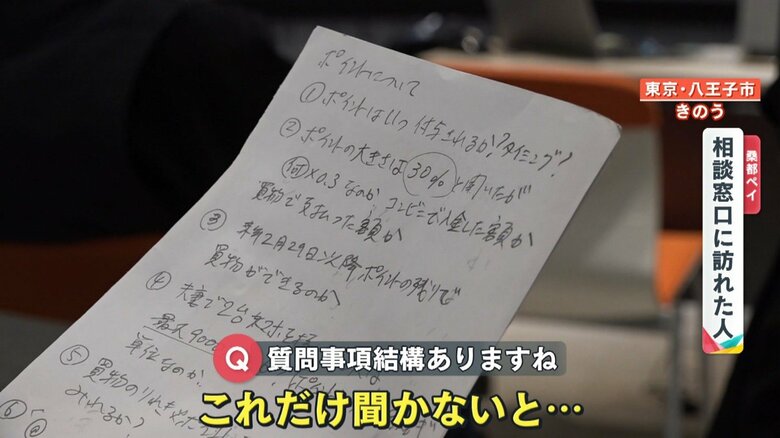 東京・八王子市
きのう
桑都ペイ
相談窓口に訪れた人
ポイントについて
① ポイントはいつ付与されるか?タイミング?
② ポイントの大きさは30%と聞いたが
何×0.3なのか コンビニで入金した額か
買物で支払った額か
③ 来年2月29日以降ポイントの残りで
買物ができるのか
④ 夫妻で2台
最大900
単位なのか?
⑤ 買物の
⑥
Q 質問事項結構ありますね
これだけ聞かないと…